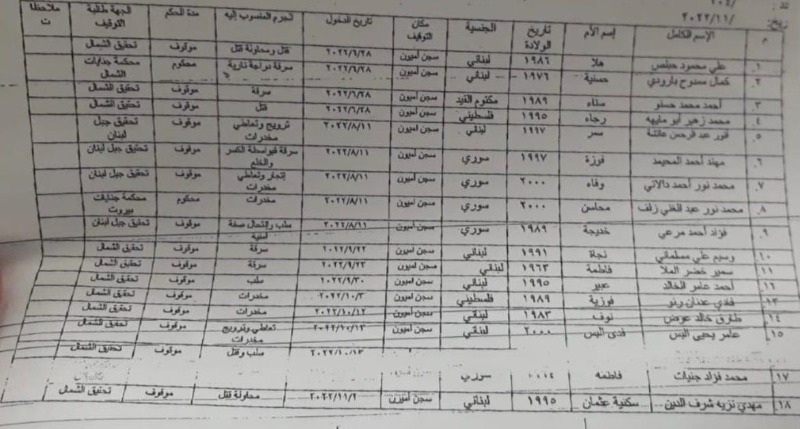 ٢٠٢٢/١١/
م الإسم الكامل إسم الأم تاريخ الولادة الجنسية مكان التوقيف تاريخ الدخول الجرم المنسوب إليه مدة الحكم الجهة طالبة التوقيف ملاحظات
١. علي محمود حبلص هلا ١٩٨٦ لبناني سجن أميون ٢٠٢٢/٦/٢٨ قتل ومحاولة قتل موقوف تحقيق الشمال
٢. كمال ممدوح بارودي حسنية ١٩٧٦ لبناني سجن أميون ٢٠٢٢/٦/٢٨ سرقة دراجة نارية محكوم محكمة جنايات الشمال
٣. أحمد محمد حسنو سناء ١٩٨٩ مكتوم القيد سجن أميون ٢٠٢٢/٦/٢٨ سرقة موقوف تحقيق الشمال
٤. محمد زهير أبو رجاء ١٩٩٥ فلسطيني سجن أميون ٢٠٢٢/٦/٢٨ قتل موقوف تحقيق الشمال
٥. عبد الرحمن عائشة سمر ١٩٩٧ لبناني سجن أميون ٢٠٢٢/٨/١١ ترويج وتعاطي مخدرات موقوف تحقيق جبل لبنان
٦. مهند أحمد المحيمد فوزة ١٩٩٧ سوري سجن أميون ٢٠٢٢/٨/١١ سرقة بواسطة الكسر والخلع موقوف تحقيق جبل لبنان
٧. محمد نور أحمد دالاتي وفاء ٢٠٠٠ سوري سجن أميون ٢٠٢٢/٨/١١ إتجار وتعاطي مخدرات موقوف تحقيق جبل لبنان
٨. محمد نور عبد الغني زلف محاسن ٢٠٠٠ سوري سجن أميون ٢٠٢٢/٨/١١ مخدرات محكوم محكمة جنايات بيروت
٩. فؤاد أحمد مرعي خديجة ١٩٨٩ سوري سجن أميون ٢٠٢٢/٨/١١ سلب وإنتحال صفة أمنية موقوف تحقيق جبل لبنان
١٠. وسيم علي مسلماني نجاة ١٩٩١ لبناني سجن أميون ٢٠٢٢/٩/٢٢ سرقة موقوف تحقيق الشمال
١١. سمير خضر الملا فاطمة ١٩٦٣ لبناني سجن أميون ٢٠٢٢/٩/٢٣ سرقة موقوف تحقيق الشمال
١٢. أحمد عامر الخالد عبير ١٩٩٥ لبناني سجن أميون ٢٠٢٢/٩/٣٠ سلب موقوف تحقيق الشمال
١٣. فادي عدنان فوزية ١٩٨٩ فلسطيني سجن أميون ٢٠٢٢/١٠/٣ مخدرات موقوف تحقيق الشمال
١٤. طارق خالد عوض نوف ١٩٨٣ لبناني سجن أميون ٢٠٢٢/١٠/١٢ مخدرات موقوف تحقيق الشمال
١٥ عامر يحيى البس فدى البس ٢٠٠٠ لبناني سجن أميون ٢٠٢٢/١٠/١٣ تعاطي وترويج مخدرات موقوف تحقيق الشمال
٢٠٢٢/١٠/١٣ سلب وقتل موقوف تحقيق الشمال
١٧ محمد فؤاد جنيات فاطمه سوري
١٨ مهدي نزيه شرف الدين سكنية عثمان ١٩٩٥ لبناني سجن أميون ٢٠٢٢/١١/٢ محاولة قتل موقوف تحقيق الشمال